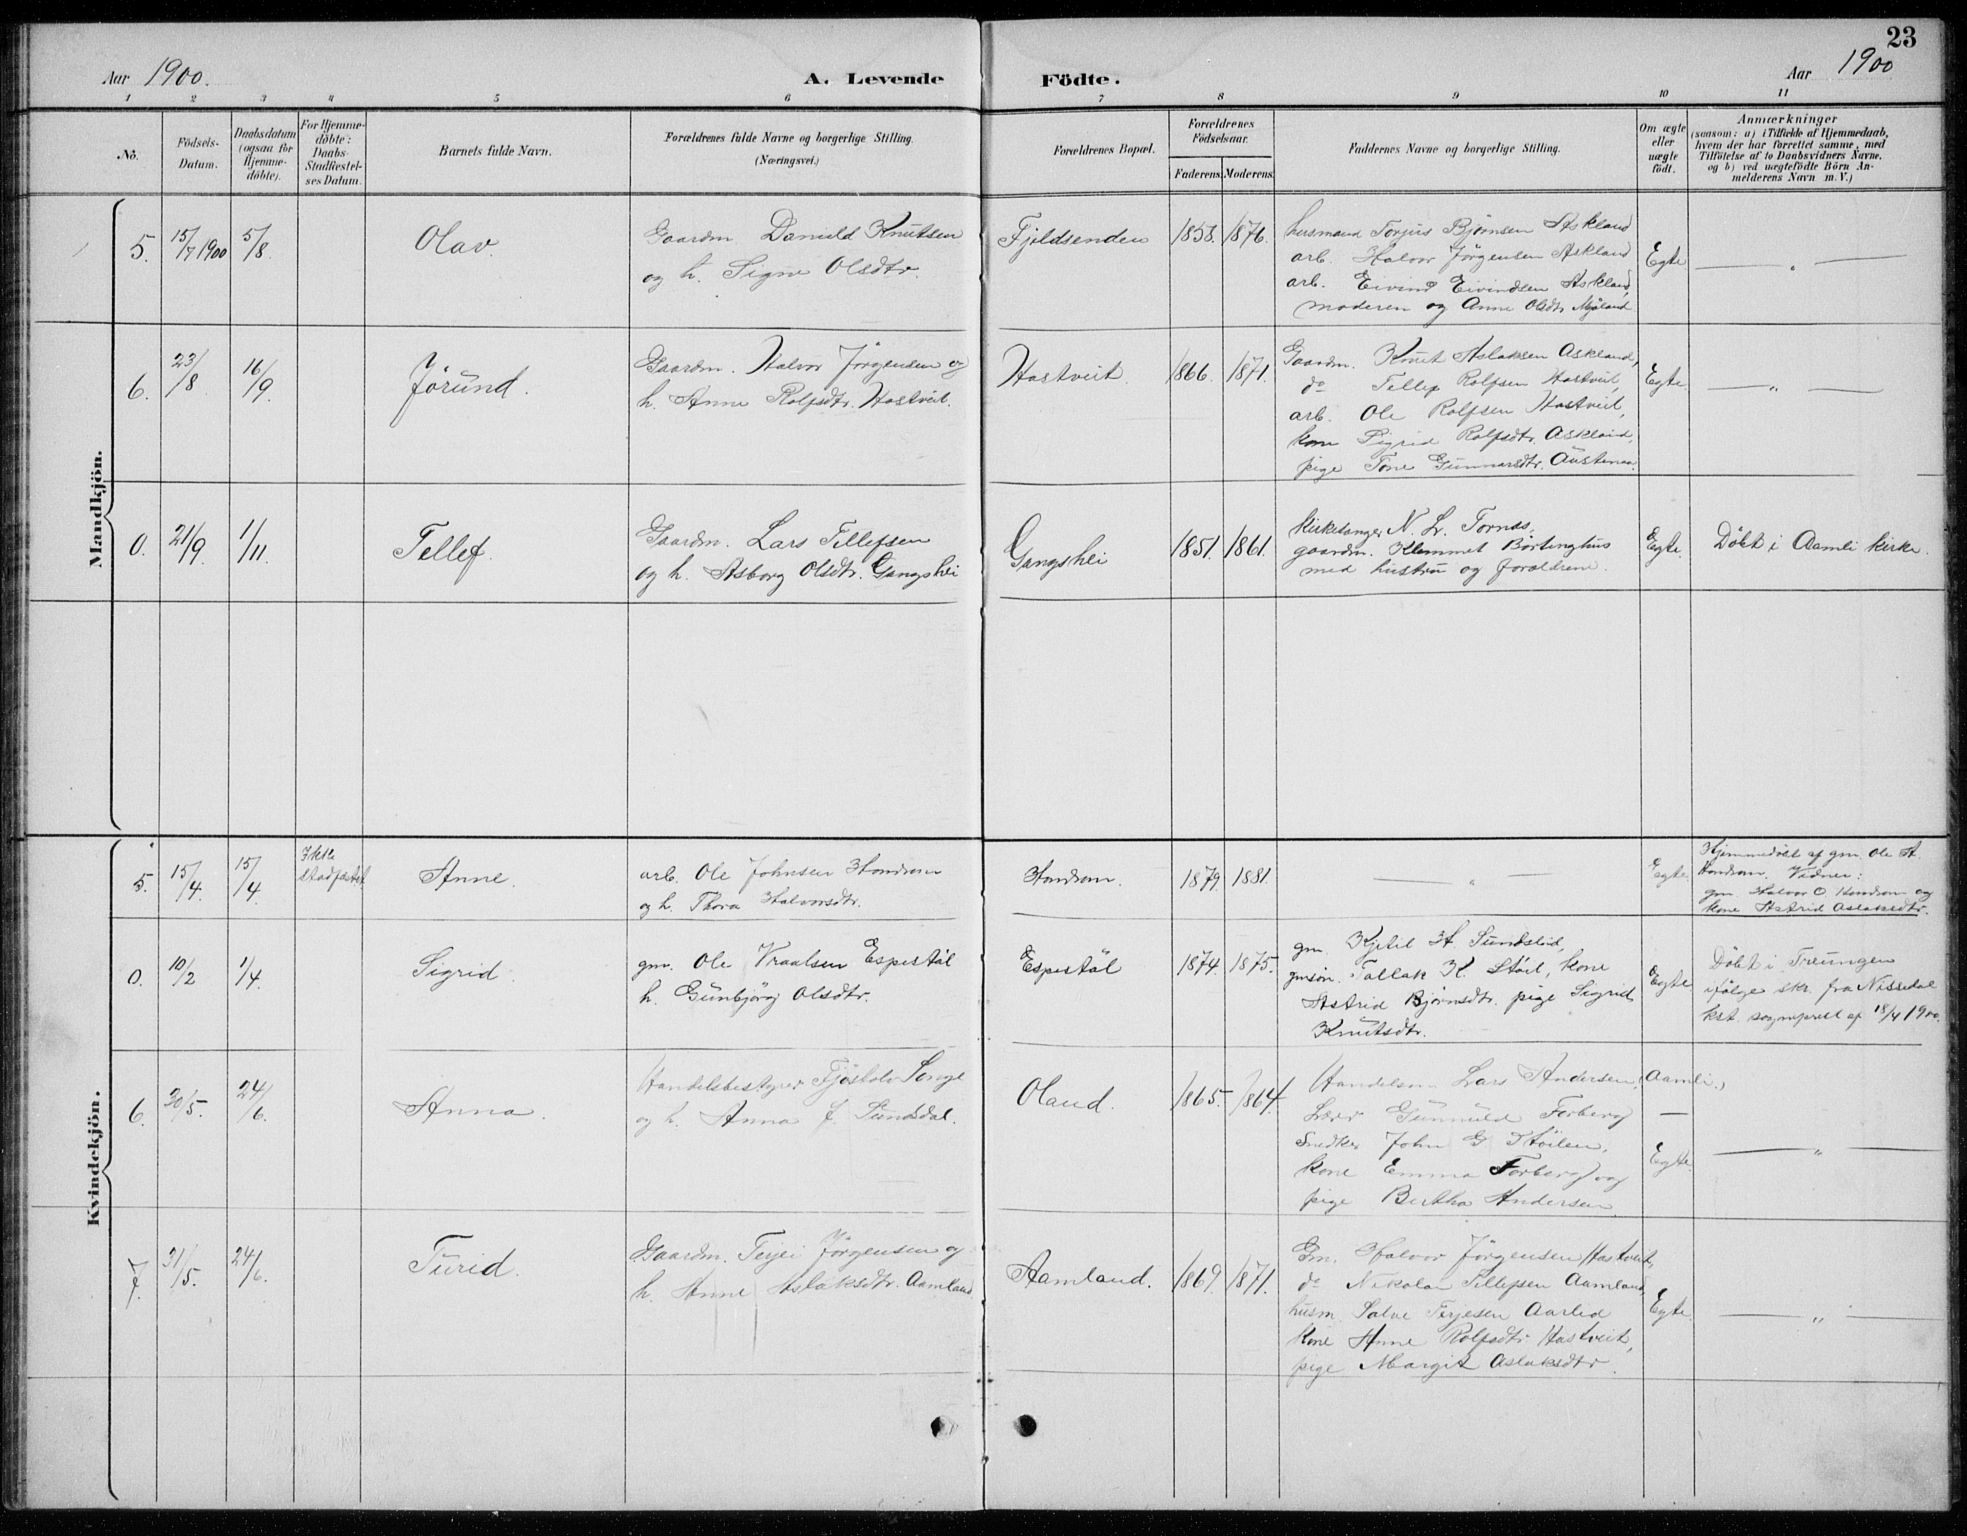 23
Aar 1900.
A. Levende Födte.
Aar 1900
1 2 3 4 5 6 7 8 9 10 11
No.
Födsels-
Datum.
Daabsdatum
(ogsaa for
Hjemme-
döbte).
For Hjemme-
döbte:
Daabs-
Stadfæstel-
ses Datum.
Barnets fulde Navn.
Forældrenes fulde Navne og borgerlige Stilling.
(Næringsvei.)
Forældrenes Bopæl.
Forældrenes
Födselsaar.
Faderens. Moderens.
Faddernes Navne og borgerlige Stilling.
Om ægte
eller
uægte
födt.
Anmærkninger
(saasom: a) i Tilfælde af Hjemmedaab,
hvem der har forrettet samme, med
Tilföielse af to Daabsvidners Navne,
og b) ved uægtefödte Börn An-
melderens Navn m. V.)
Mandkjön.
5. 15/7 1900 5/8 Olav.
Gaardm. Daniuld Knutsen
og h. Signe Olsdtr.
Fjeldsenden 1858. 1876.
husmand Torjus Bjørnsen Askland
arb. Halvor Jørgensen Askland
arb. Eivind Eivindsen Askland,
moderen og Anne Olsdtr. Mjåland
Egte — „ —
6. 23/8 16/9 Jörund.
Gaardm. Halvor Jörgensen og
h. Anne Rolfsdtr. Hastveit.
Hastveit 1866. 1871.
Gaardm. Knut Aslaksen Askland,
do Tellef Rolfsen Hastveit,
arb. Ole Rolfsen Hastveit,
kone Sigrid Rolfsdtr. Askland,
pige Tone Gunnarsdtr. Austenaa.
Egte. — „ —
0. 21/9. 1/11. Tellef.
Gaardm. Lars Tellefsen
og h. Asborg Olsdtr. Gangshei
Gangshei 1851. 1861.
kirkesanger N. Lr. Tornes,
gaardm. Klemmet Börtinghus
med hustru og forældrene.
Egte. Döbt i Aamli kirke.
Kvindekjön.
5. 15/4. 15/4.
Ikke
stadfæstet
Anne.
arb. Ole Johnsen Hondrom
og h. Thora Halvorsdtr.
Hondrom. 1879. 1881. — „ — Egte.
Hjemmedöbt af gm. Ole A.
Hondrom. Vidner:
gm Halvor O. Hondrom og
kone Astrid Aslaksdtr.
0. 10/2 1/4. Sigrid.
gm. Ole Vraalsen Espestöl
h. Gunbjörg Olsdtr.
Espestöl 1874. 1875.
gm. Kjetil A. Sundslid,
gmsön. Tallak K. Stöil, kone
Astrid Bjørnsdtr. pige Sigrid
Knutsdtr.
Egte.
Döbt i Treungen
ifölge skr. fra Nissedal
kst. sogneprest af 18/4 1900.
6. 30/5. 24/6. Anna.
Handelsbestyrer Tjöstolv Songe
og h. Anna f. Sundsdal.
Oland. 1865. 1864.
Handelsm Lars Andersen, (Aamli.)
Lærer Gunnuld Forberg —
Snedker John G. Stöilen,
kone Emma Forberg og
pige Bertha Andersen
Egte — „ —
7. 31/5. 24/6. Turid.
Gaardm. Terjei Jörgensen og
h. Anne Aslaksdtr. Aamland
Aamland. 1869. 1871.
Gm. Halvor Jörgensen Hastveit,
do Nikolai Tellefsen Aamland,
husm. Salve Terjesen Aarlid
kone Anne Rolfsdtr Hastveit,
pige Margit Aslaksdtr.
Egte — „ —